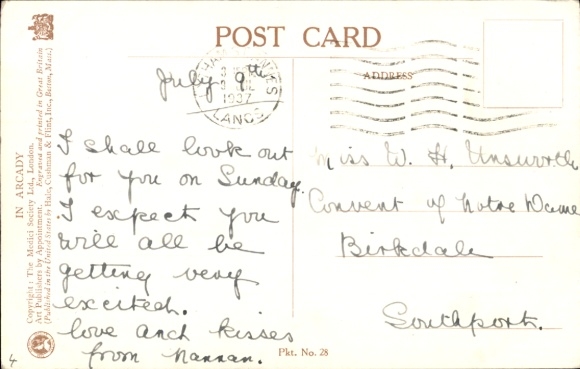 POST CARD
ADDRESS
July 9th
1937
LANCS
I shall look out
for you on Sunday.
I expect you
will all be
getting very
excited.
love and kisses
from Nannan.
Miss W. H. Unsworth
Convent of Notre Dame
Birkdale
Southport.
IN ARCADY
Copyright: The Medici Society Ltd., London.
Art Publishers by Appointment. Engraved and printed in Great Britain
(Published in the United States by Hale, Cushman & Flint, Inc., Boston, Mass.)
Pkt. No. 28
4